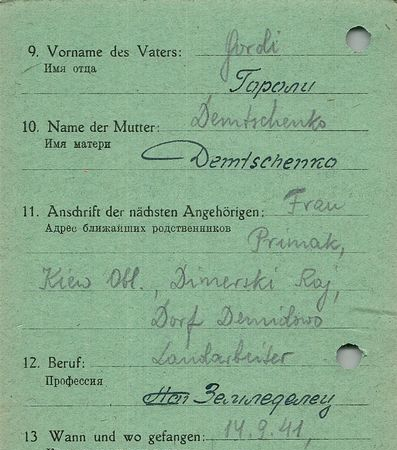 9. Vorname des Vaters: Gordi
Имя отца
10. Name der Mutter: Demtschenko
Имя матери
Demtschenko
11. Anschrift der nächsten Angehörigen: Frau
Адрес ближайших родственников
Primak,
Kiew Obl., Dimerski Raj,
Dorf Demidowo
12. Beruf: Landarbeiter
Профессия
Земледелец
13 Wann und wo gefangen: 14.9.41,